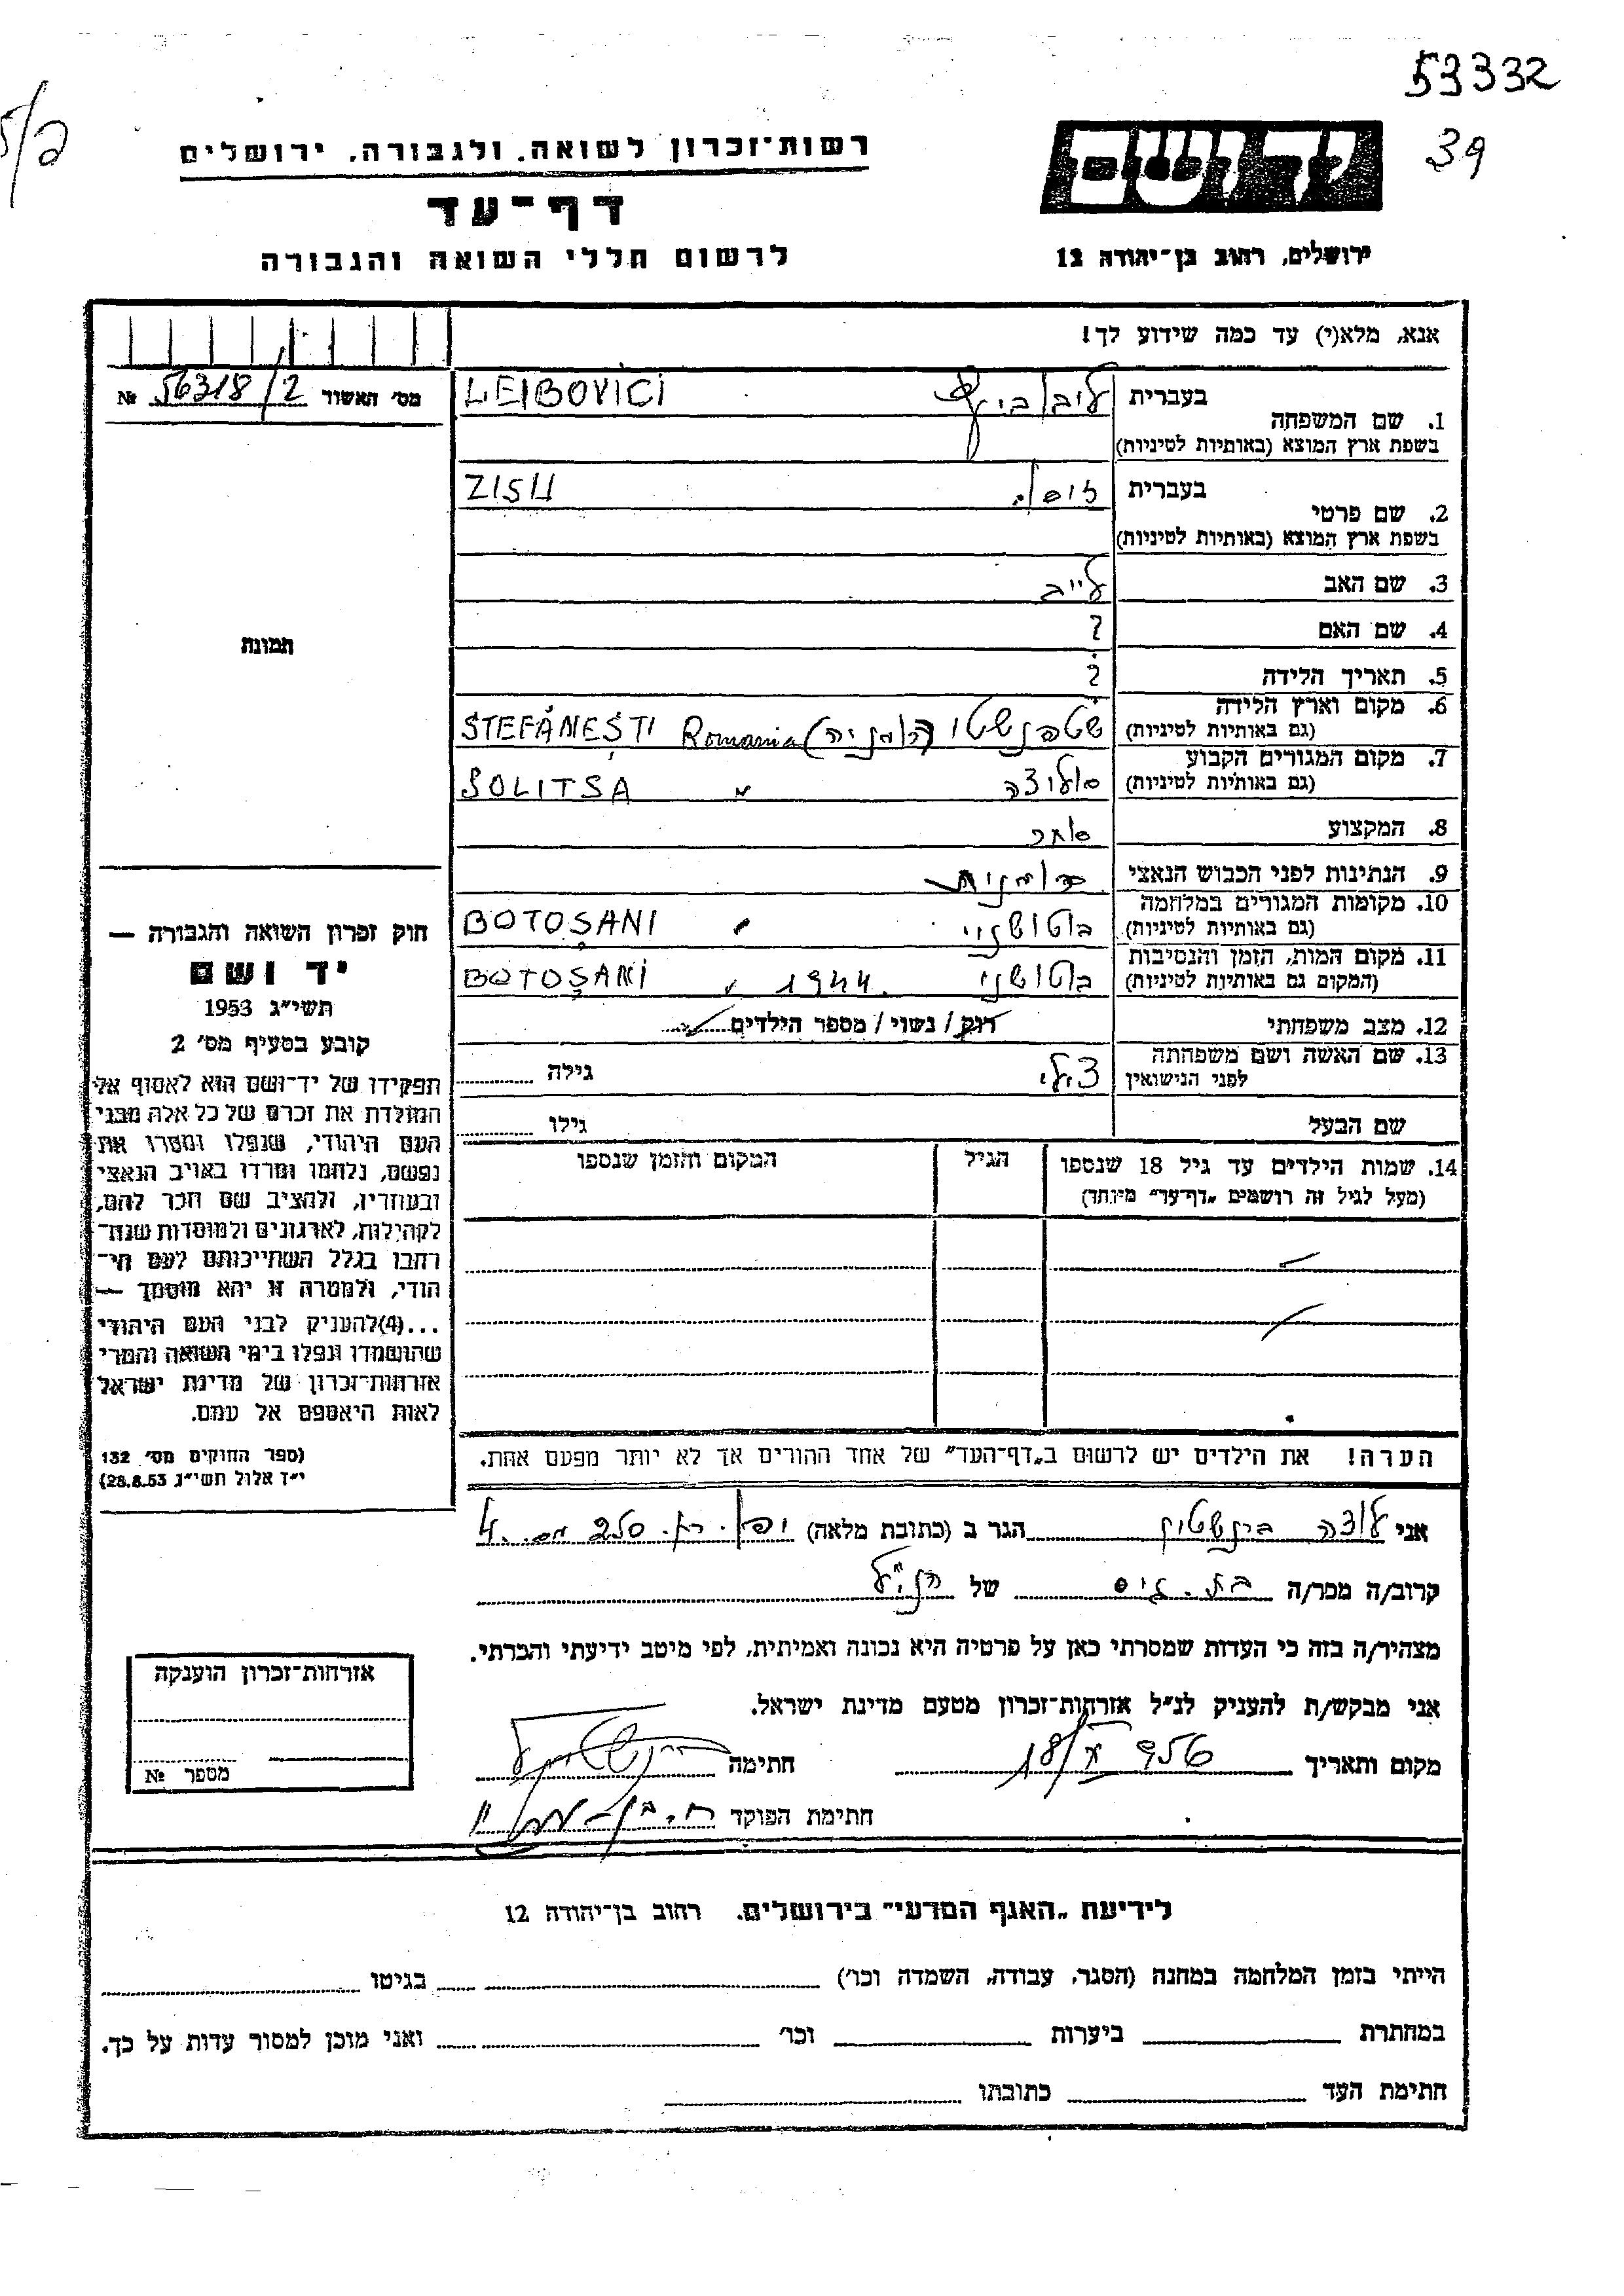 53332
39
רשות־זכרון לשואה. ולגבורה. ירושלים
דף־עד
לרשום חללי השואה והגבורה
יד ושם
ירושלים, רחוב בן־יהודה 12
אנא, מלא(י) עד כמה שידוע לך!
מס׳ האשור 56318/2 №
1. שם המשפחה
בעברית ליבוביץ LEIBOVICI
בשפת ארץ המוצא (באותיות לטיניות)
2. שם פרטי
בעברית זיסו. ZISU
בשפת ארץ המוצא (באותיות לטיניות)
3. שם האב לייב
4. שם האם ?
תמונה
5. תאריך הלידה ?
6. מקום וארץ הלידה שטפנשטי (רומניה) Romania STEFĂNEȘTI
(גם באותיות לטיניות)
7. מקום המגורים הקבוע סוליצה " SOLITSA
(גם באותיות לטיניות)
8. המקצוע סוחר
9. הנתינות לפני הכבוש הנאצי רומנית
10. מקומות המגורים במלחמה בוטושני " BOTOȘANI
(גם באותיות לטיניות)
11. מקום המות, הזמן והנסיבות בוטושני 1944. " BOTOȘANI
(המקום גם באותיות לטיניות)
12. מצב משפחתי רוק / נשוי / מספר הילדים
13. שם האשה ושם משפחתה
לפני הנישואין
גילה
שם הבעל גילו
14. שמות הילדים עד גיל 18 שנספו הגיל המקום והזמן שנספו
(מעל לגיל זה רושמים „דף־עד״ מיוחד)
חוק זכרון השואה והגבורה —
יד ושם
תשי״ג 1953
קובע בסעיף מס׳ 2
תפקידו של יד־ושם הוא לאסוף אל
המולדת את זכרם של כל אלה מבני
העם היהודי, שנפלו ומסרו את
נפשם, נלחמו ומרדו באויב הנאצי
ובעוזריו, ולהציב שם וזכר להם,
לקהילות, לארגונים ולמוסדות שנח־
רבו בגלל השתייכותם לעם הי־
הודי, ולמטרה זו יהא מוסמך —
...(4)להעניק לבני העם היהודי
שהושמדו ונפלו בימי השואה והמרי
אזרחות־זכרון של מדינת ישראל
לאות היאספם אל עמם.
(ספר החוקים מס׳ 132
י״ז אלול תשי״ג 28.8.53)
הערה! את הילדים יש לרשום ב„דף־העד״ של אחד ההורים אך לא יותר מפעם אחת.
אני לוצה ברנשטיין הגר ב (כתובת מלאה) יפו. רח. 250 מס. 4
קרוב/ה מכר/ה בת. גיס של הנ״ל
מצהיר/ה בזה כי העדות שמסרתי כאן על פרטיה היא נכונה ואמיתית, לפי מיטב ידיעתי והכרתי.
אני מבקש/ת להעניק לנ״ל אזרחות־זכרון מטעם מדינת ישראל.
מקום ותאריך 18/ 956 חתימה
חתימת הפוקד
אזרחות־זכרון הוענקה
מספר №
לידיעת „האגף המדעי״ בירושלים. רחוב בן־יהודה 12
הייתי בזמן המלחמה במחנה (הסגר, עבודה, השמדה וכו׳) בגיטו
במחתרת ביערות וכו׳ ואני מוכן למסור עדות על כך.
חתימת העד כתובתו